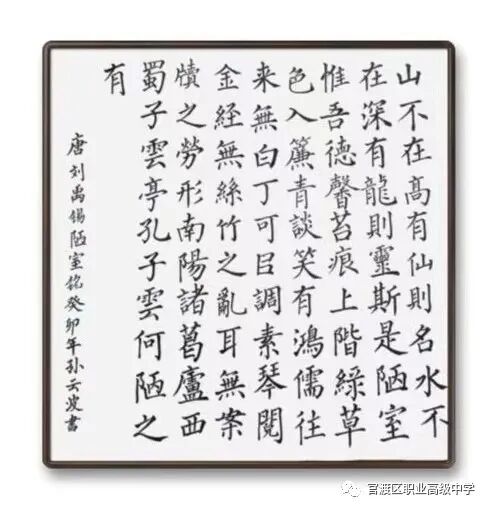 山不在高有仙則名水不
在深有龍則靈斯是陋室
惟吾德馨苔痕上階綠草
色入簾青談笑有鴻儒往
来無白丁可㠯調素琴閱
金経無絲竹之亂耳無案
牘之勞形南陽諸葛廬西
蜀子雲亭孔子雲何陋之
有
唐刘禹锡陋室銘癸卯年孙云波書
官渡区职业高级中学